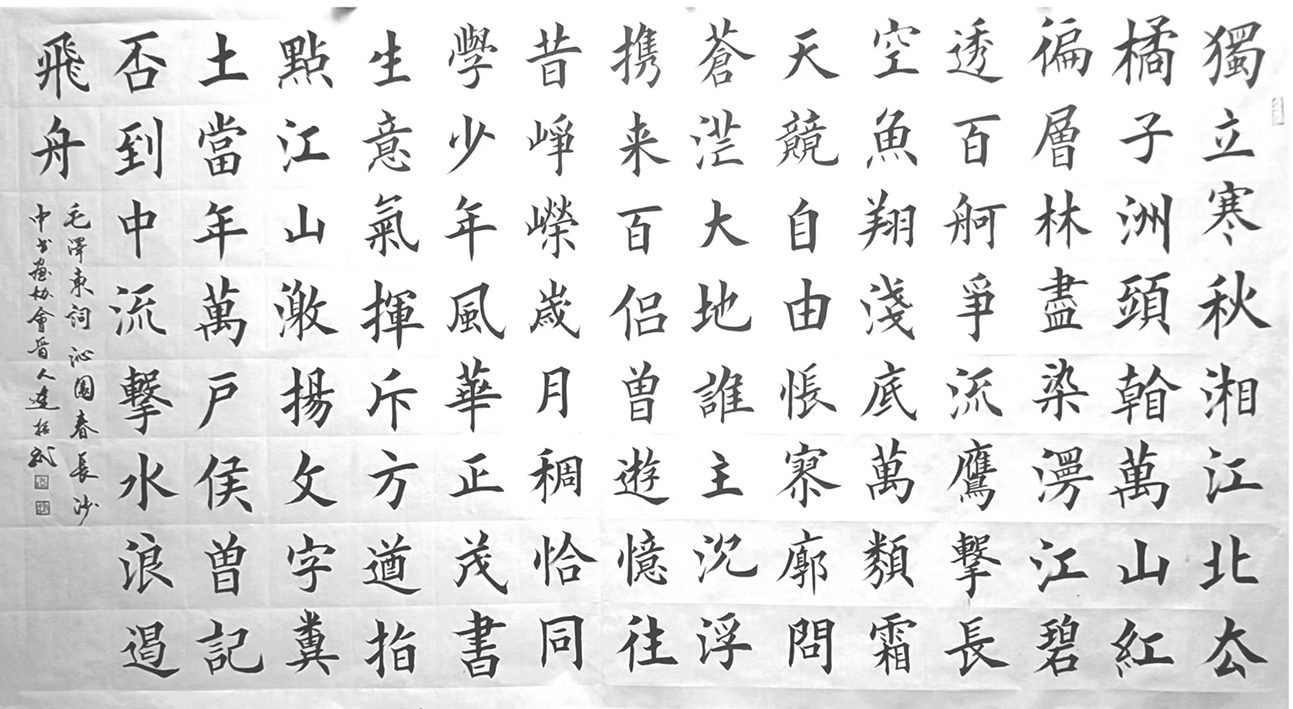 獨立寒秋湘江北厺
橘子洲頭看萬山紅
徧層林盡染漫江碧
透百舸爭流鷹擊長
空魚翔淺底萬類霜
天競自由悵寥廓問
蒼茫大地誰主沉浮
携来百侣曾遊憶往
昔崢嶸歲月稠恰同
學少年風華正茂書
生意氣揮斥方遒指
點江山激揚文字糞
土當年萬戶侯曾記
否到中流擊水浪遏
飛舟
毛澤東詞沁園春長沙
中书畫协會晉人連